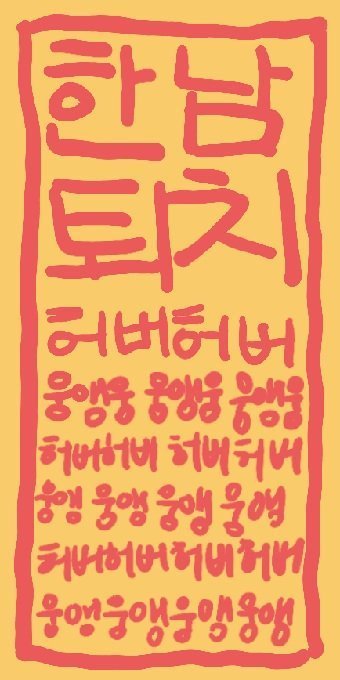 한남
퇴치
허버허버
웅앵웅 웅앵웅 웅앵웅
허버허버 허버허버
웅앵 웅앵 웅앵 웅앵
허버허버허버허버
웅앵웅앵웅앵웅앵